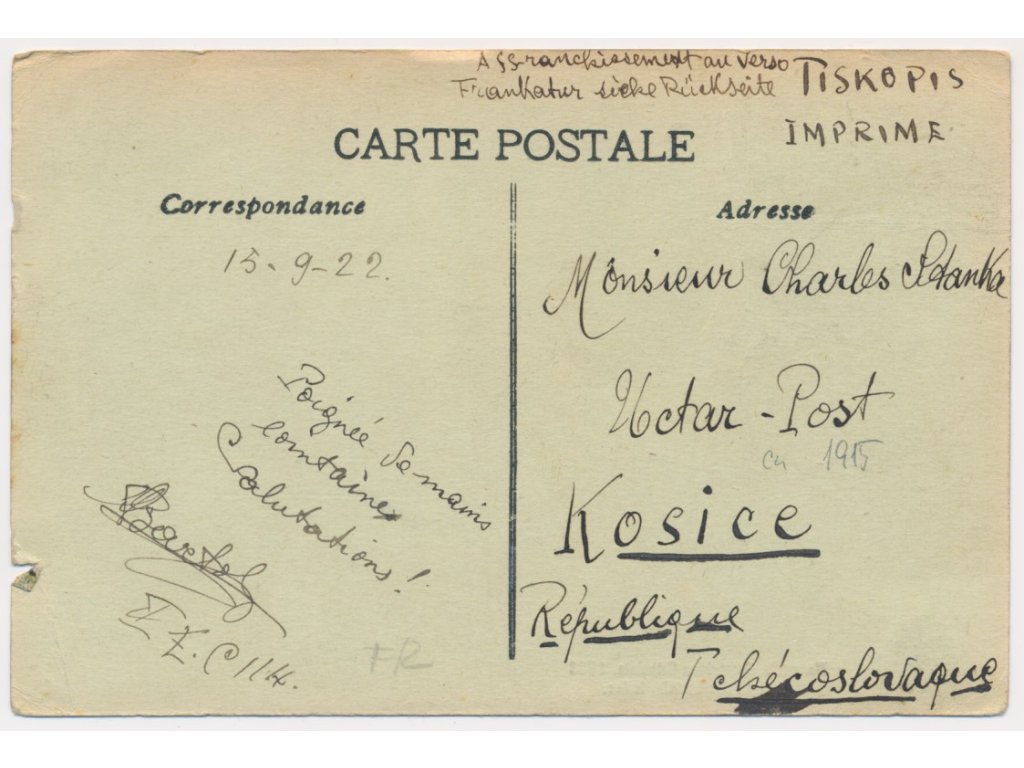 Affranchissement au verso
Frankatur sieke Rückseite
TISKOPIS
IMPRIME
CARTE POSTALE
Correspondance
15-9-22.
Poignée de mains
Salutations!
FR
Adresse
Monsieur Charles
Uctar-Post
1915
Kosice
République
Tchécoslovaque